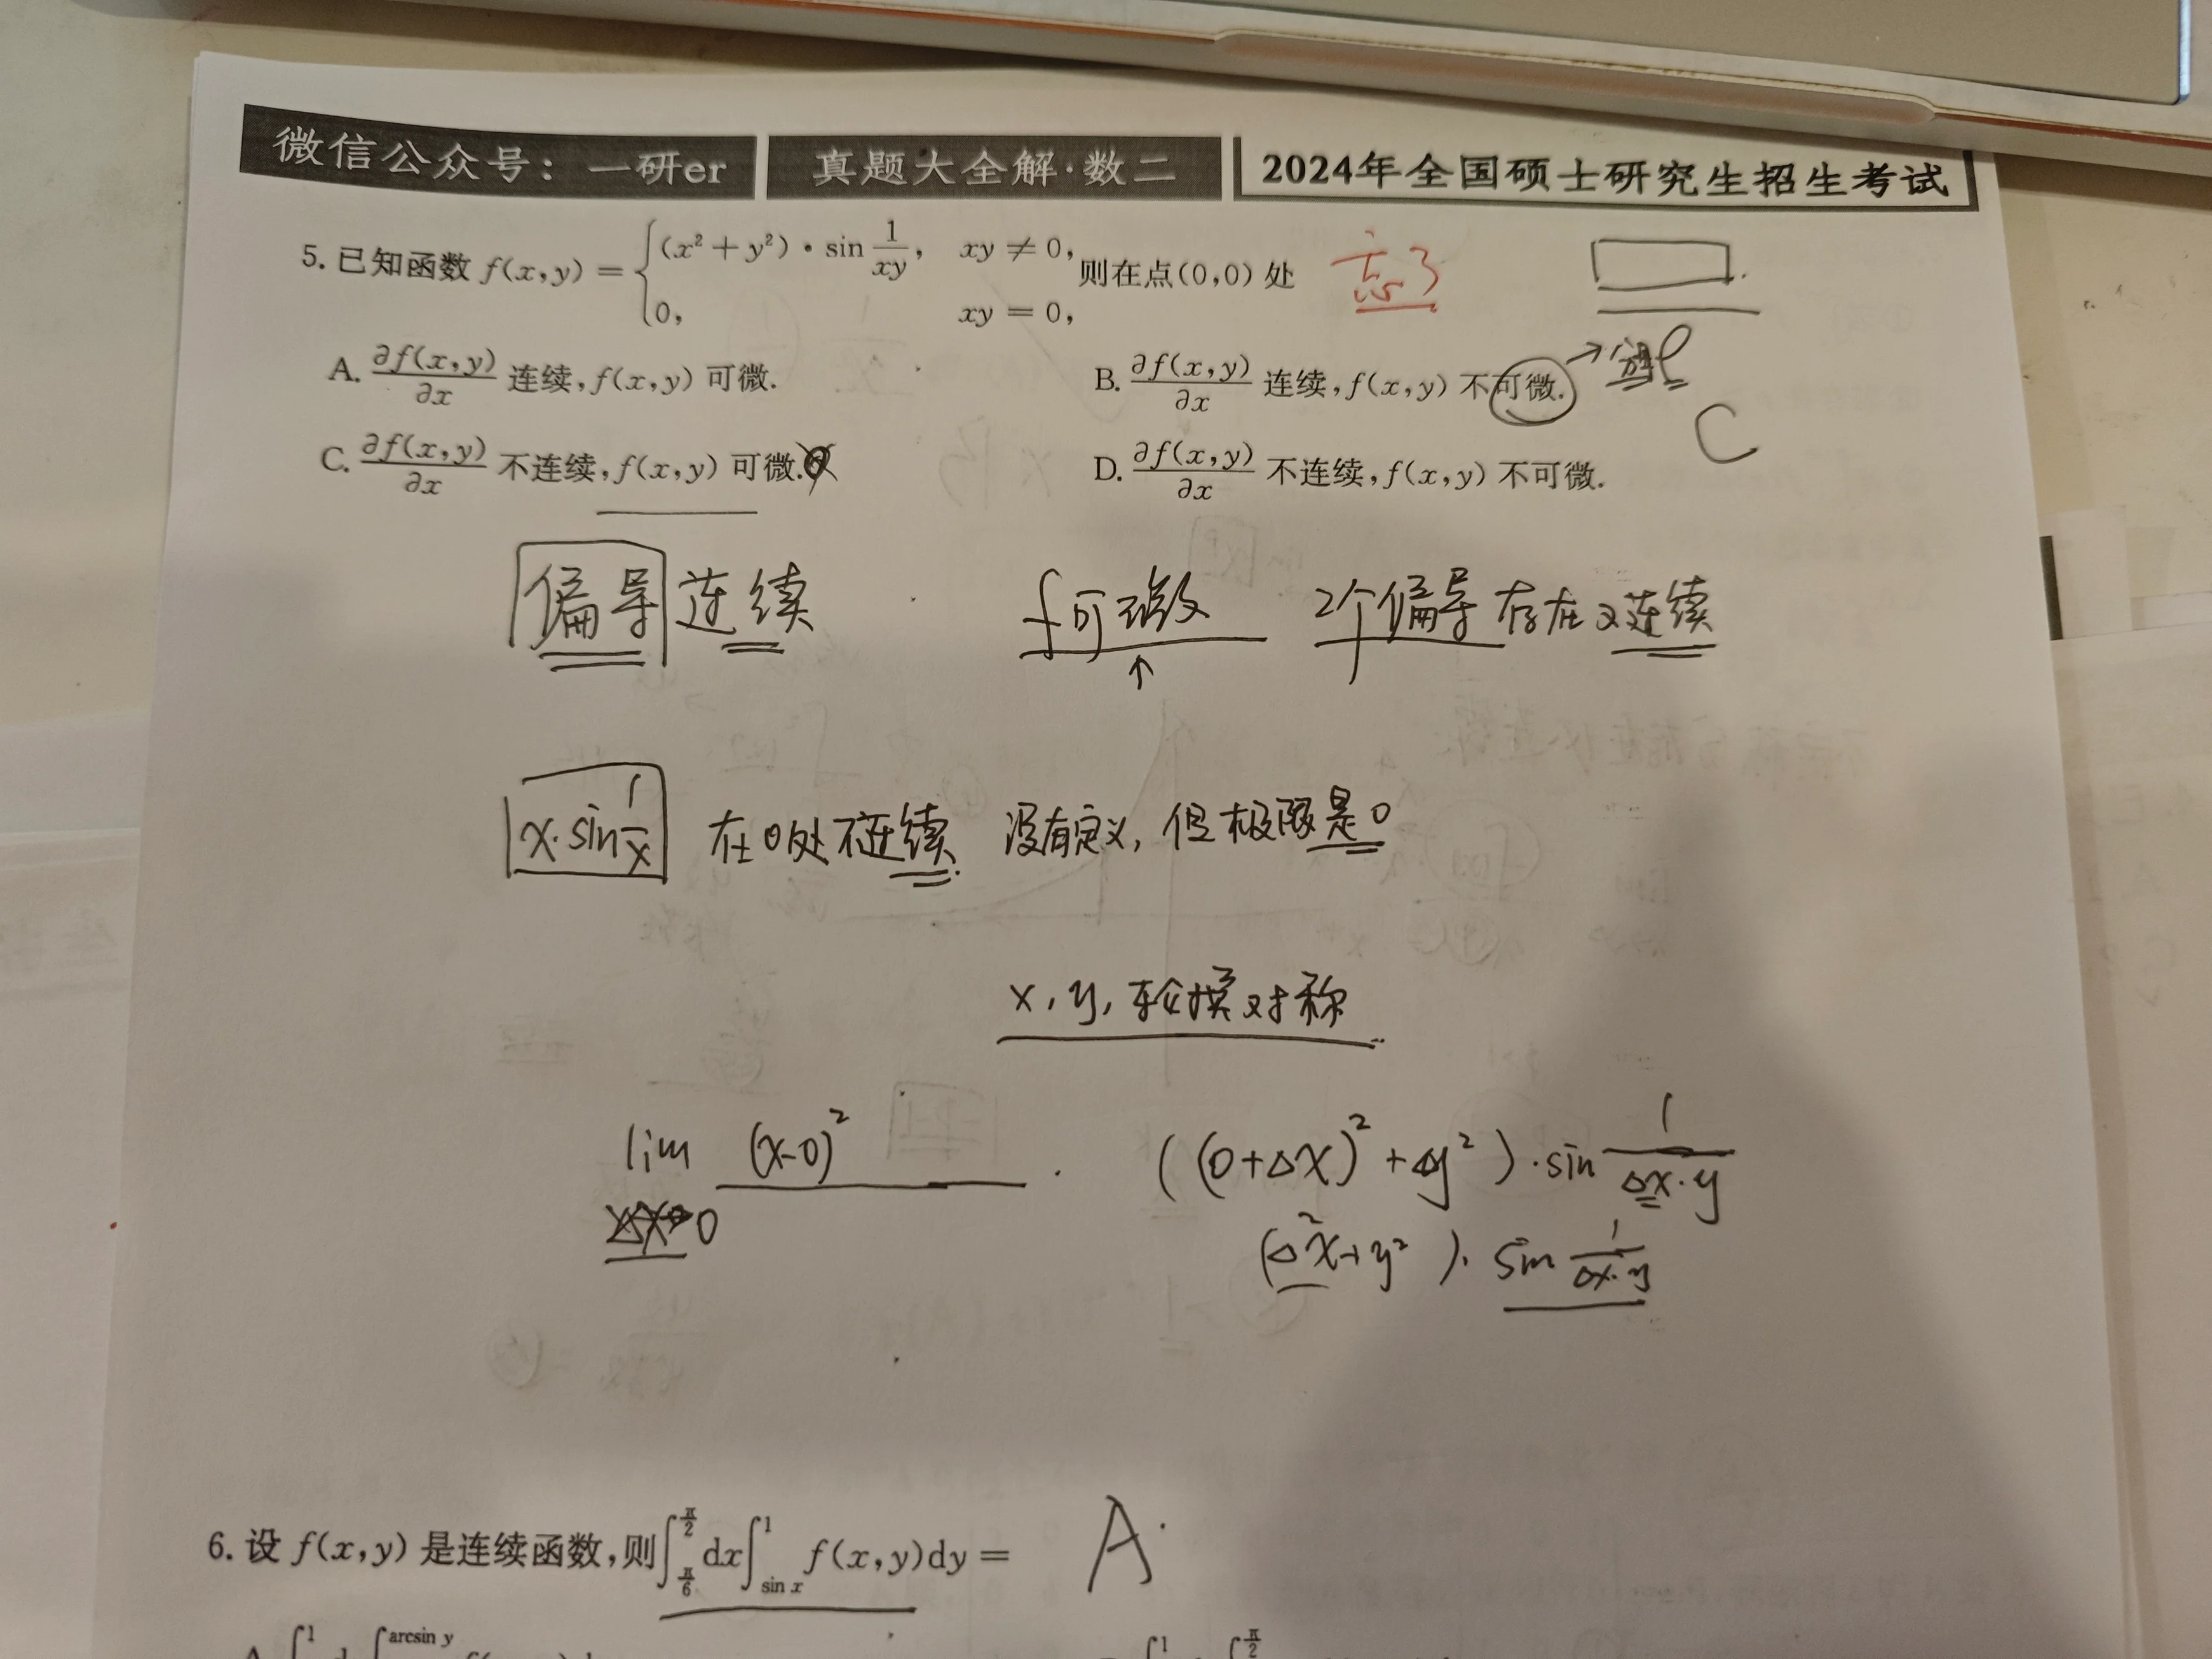 微信公众号：一研er 真题大全解·数二 2024年全国硕士研究生招生考试
5. 已知函数 f(x,y) = { (x² + y²)·sin 1/xy, xy ≠ 0, 0, xy = 0, 则在点(0,0) 处 忘了
A. ∂f(x,y)/∂x 连续,f(x,y) 可微. B. ∂f(x,y)/∂x 连续,f(x,y) 不可微. →
C. ∂f(x,y)/∂x 不连续,f(x,y) 可微. D. ∂f(x,y)/∂x 不连续,f(x,y) 不可微. C
偏导连续 f可微 2个偏导存在又连续
↑
x·sin 1/x 在0处不连续. 没有定义, 但极限是0
x, y, 轮换对称
lim (x-0)² ((0+Δx)²+Δy²)·sin 1/Δx·y
0 (Δ²x+y²)·sin 1/Δx·y
6. 设 f(x,y) 是连续函数,则∫_{π/6}^{π/2} dx∫_{sin x}^{1} f(x,y)dy = A.
∫ 1 arcsin y ∫ 1 ∫ π/2